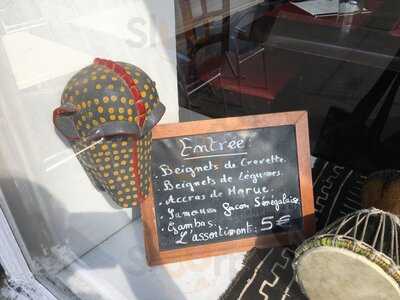 Entrée:
. Beignets de Crevette.
. Beignets de Légumes.
. Accras de Morue.
. Samoussa façon Sénégalaise
. Gambas.
L'assortiment: 5€